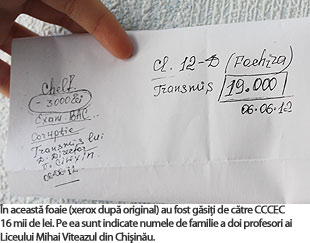 Chelt.
- 3000 lei
Exam. BAC
Coruptie
Transmis lui
D. Director
Cl. 12-B (Fochiza)
Transmis 19.000
06.06.12
În această foaie (xerox după original) au fost găsiți de către CCCEC
16 mii de lei. Pe ea sunt indicate numele de familie a doi profesori ai
Liceului Mihai Viteazul din Chișinău.